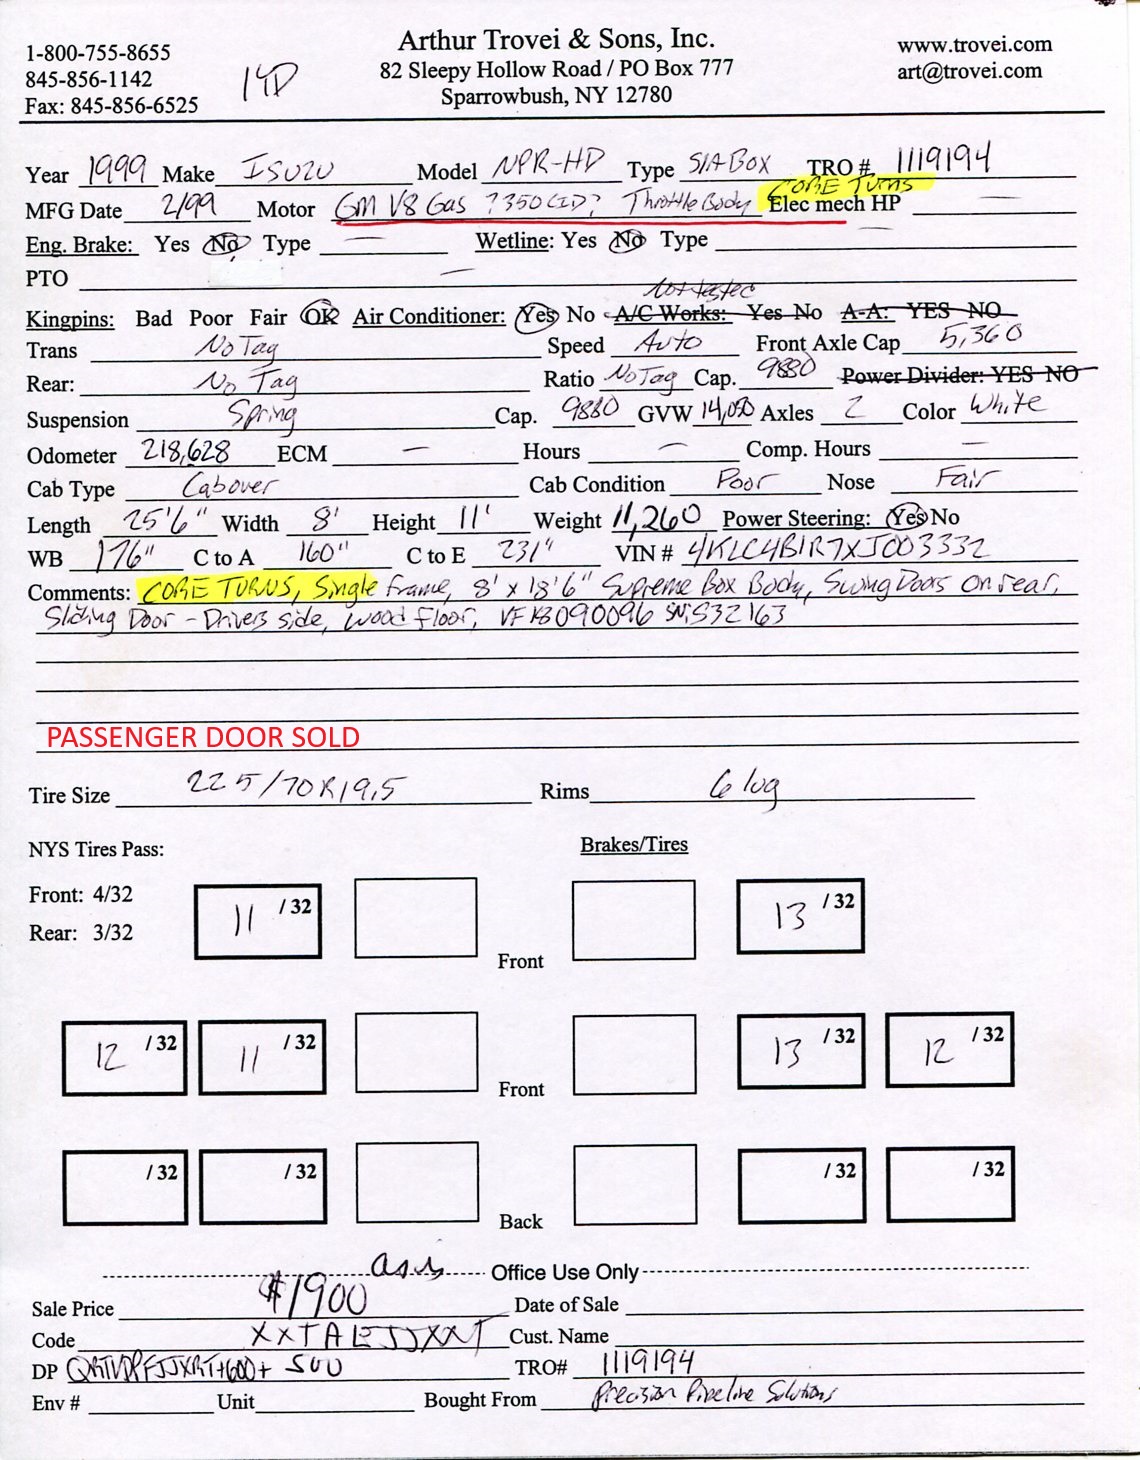 Arthur Trovei & Sons, Inc.
1-800-755-8655 82 Sleepy Hollow Road / PO Box 777 www.trovei.com
845-856-1142 Sparrowbush, NY 12780 art@trovei.com
Fax: 845-856-6525
Year 1999 Make ISUZU Model NPR-HD Type S/A BOX TRO # 1119194
CORE TURNS
MFG Date 2/99 Motor GM V8 Gas ?350CID? Throttle Body Elec mech HP —
Eng. Brake: Yes No Type — Wetline: Yes No Type —
PTO —
Not tested
Kingpins: Bad Poor Fair OK Air Conditioner: Yes No A/C Works: Yes No A-A: YES NO
Trans No Tag Speed Auto Front Axle Cap 5,360
Rear: No Tag Ratio No Tag Cap. 9880 Power Divider: YES NO
Suspension Spring Cap. 9880 GVW 14,050 Axles 2 Color White
Odometer 218,628 ECM — Hours — Comp. Hours —
Cab Type Cabover Cab Condition Poor Nose Fair
Length 25'6" Width 8' Height 11' Weight 11,260 Power Steering: Yes No
WB 176" C to A 160" C to E 231" VIN # 4KLC4B1R7XJ003332
Comments: CORE TURNS, Single frame, 8' x 18'6" Supreme Box Body, Swing Doors on rear,
Sliding Door - Drivers side, wood floor, VF KB090096 SN: S32163
PASSENGER DOOR SOLD
Tire Size 225/70R19.5 Rims 6 lug
NYS Tires Pass: Brakes/Tires
Front: 4/32 11 /32 13 /32
Rear: 3/32
Front
12 /32 11 /32 13 /32 12 /32
Front
/32 /32 /32 /32
Back
as is Office Use Only
Sale Price $1900 Date of Sale
Code Cust. Name
DP +600+ 500 TRO# 1119194
Env # Unit Bought From Precision Pipeline Solutions